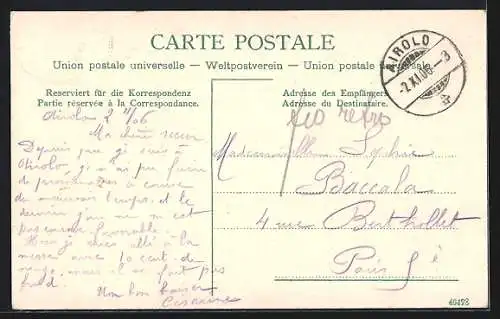 CARTE POSTALE
Union postale universelle – Weltpostverein – Union postale universale
Reserviert für die Korrespondenz
Partie réservée à la Correspondance.
Adresse des Empfängers
Adresse du Destinataire.
AIROLO
-2.XI.06.-3
Airolo 2 11/06
Ma chère soeur
Depuis que je suis à
Airolo, je n'ai pu faire
de promenades à cause
du mauvais temps et le
m'est
pas encore favorable.
Hier je suis allé à la
messe avec 10 cent. de
neige, mais il ne fait pas
froid.
Un bon baiser
Mademoiselle Sophie
Baccala
4 rue Berthollet
Paris 5e
46478